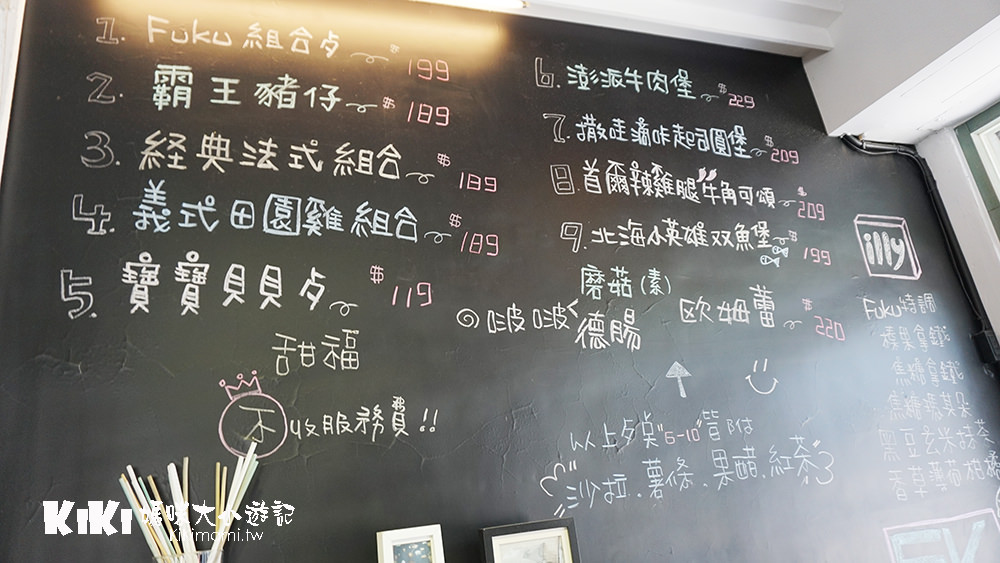 1. Fuku組合歺 $199
2. 霸王豬仔 $189
3. 経典法式組合 $189
4. 義式田園雞組合 $189
5. 寶寶貝貝歺 $119
甜福
不收服務費!!
6. 澎派牛肉堡 $229
7. 撒哇滴咔起司圓堡 $209
8. 首爾辣雞腿牛角可頌 $209
9. 北海小英雄双魚堡 $199
◎啵啵<
磨菇(素)
德腸
歐姆蕾 $220
以上歺奌"6-10"皆附
沙拉、薯條、果醋、紅茶
illy
Fuku特調
榛果拿鐵
焦糖拿鐵
焦糖瑪其朵
黑豆玄米抹茶
KiKi 媽咪大小遊記
kikimami.tw